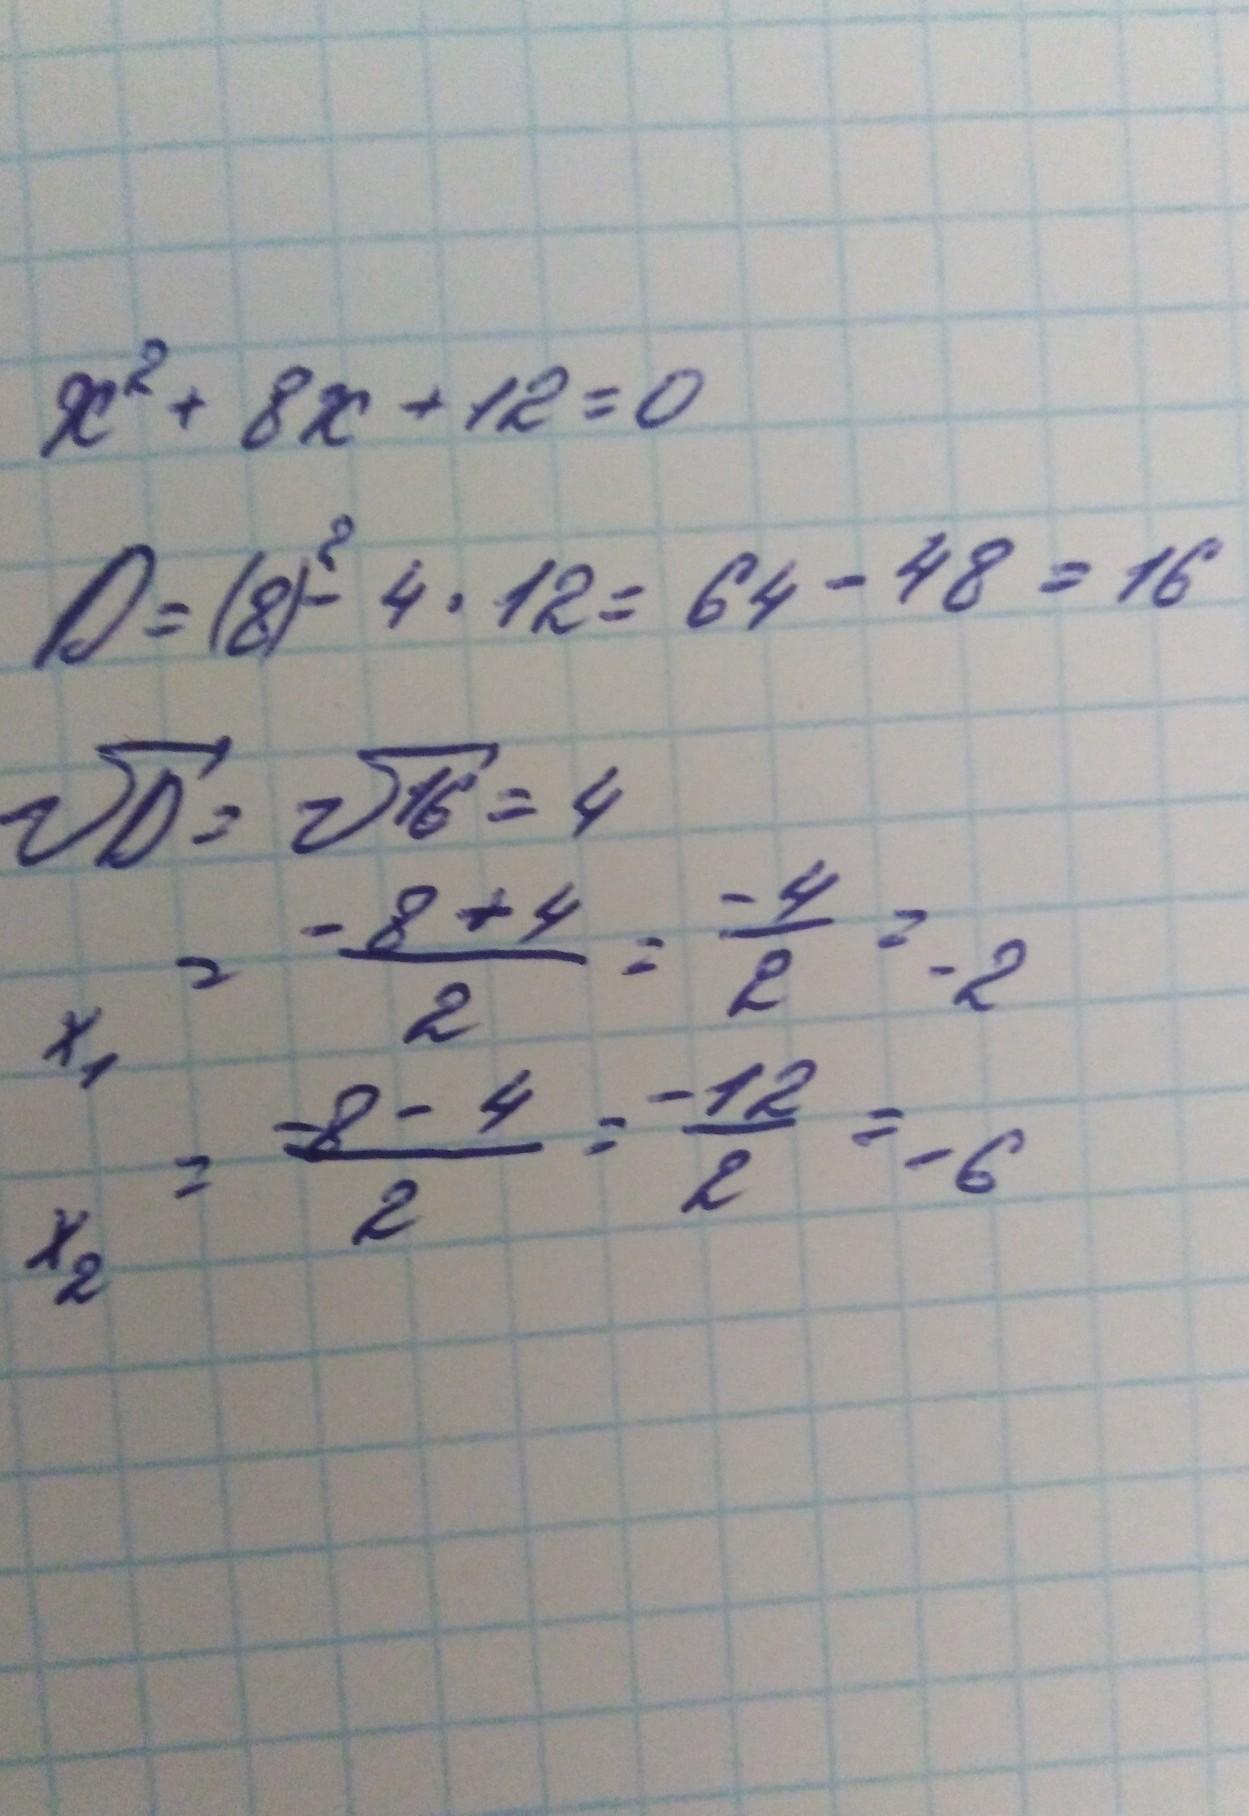 x² + 8x + 12 = 0
D = (8)² - 4 · 12 = 64 - 48 = 16
√D = √16 = 4
x₁ = (-8 + 4)/2 = -4/2 = -2
x₂ = (-8 - 4)/2 = -12/2 = -6